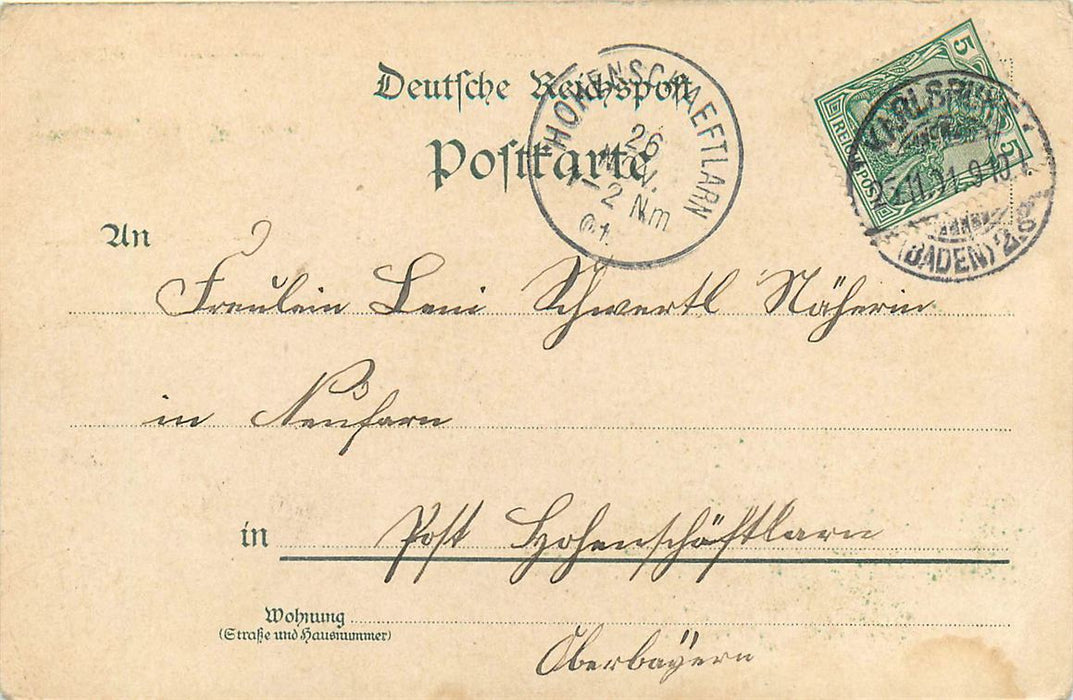 Deutsche Reichspost
Postkarte
HOHENSCHAEFTLARN
26
NOV.
1-2 Nm
01.
5
REICHSPOST
5
KARLSRUHE
.11.01. 9-10
(BADEN) 2
An
Freulein Leni Schwertl Näherin
in Neufarn
in Post Hohenschäftlarn
Wohnung
(Straße und Hausnummer)
Oberbayern